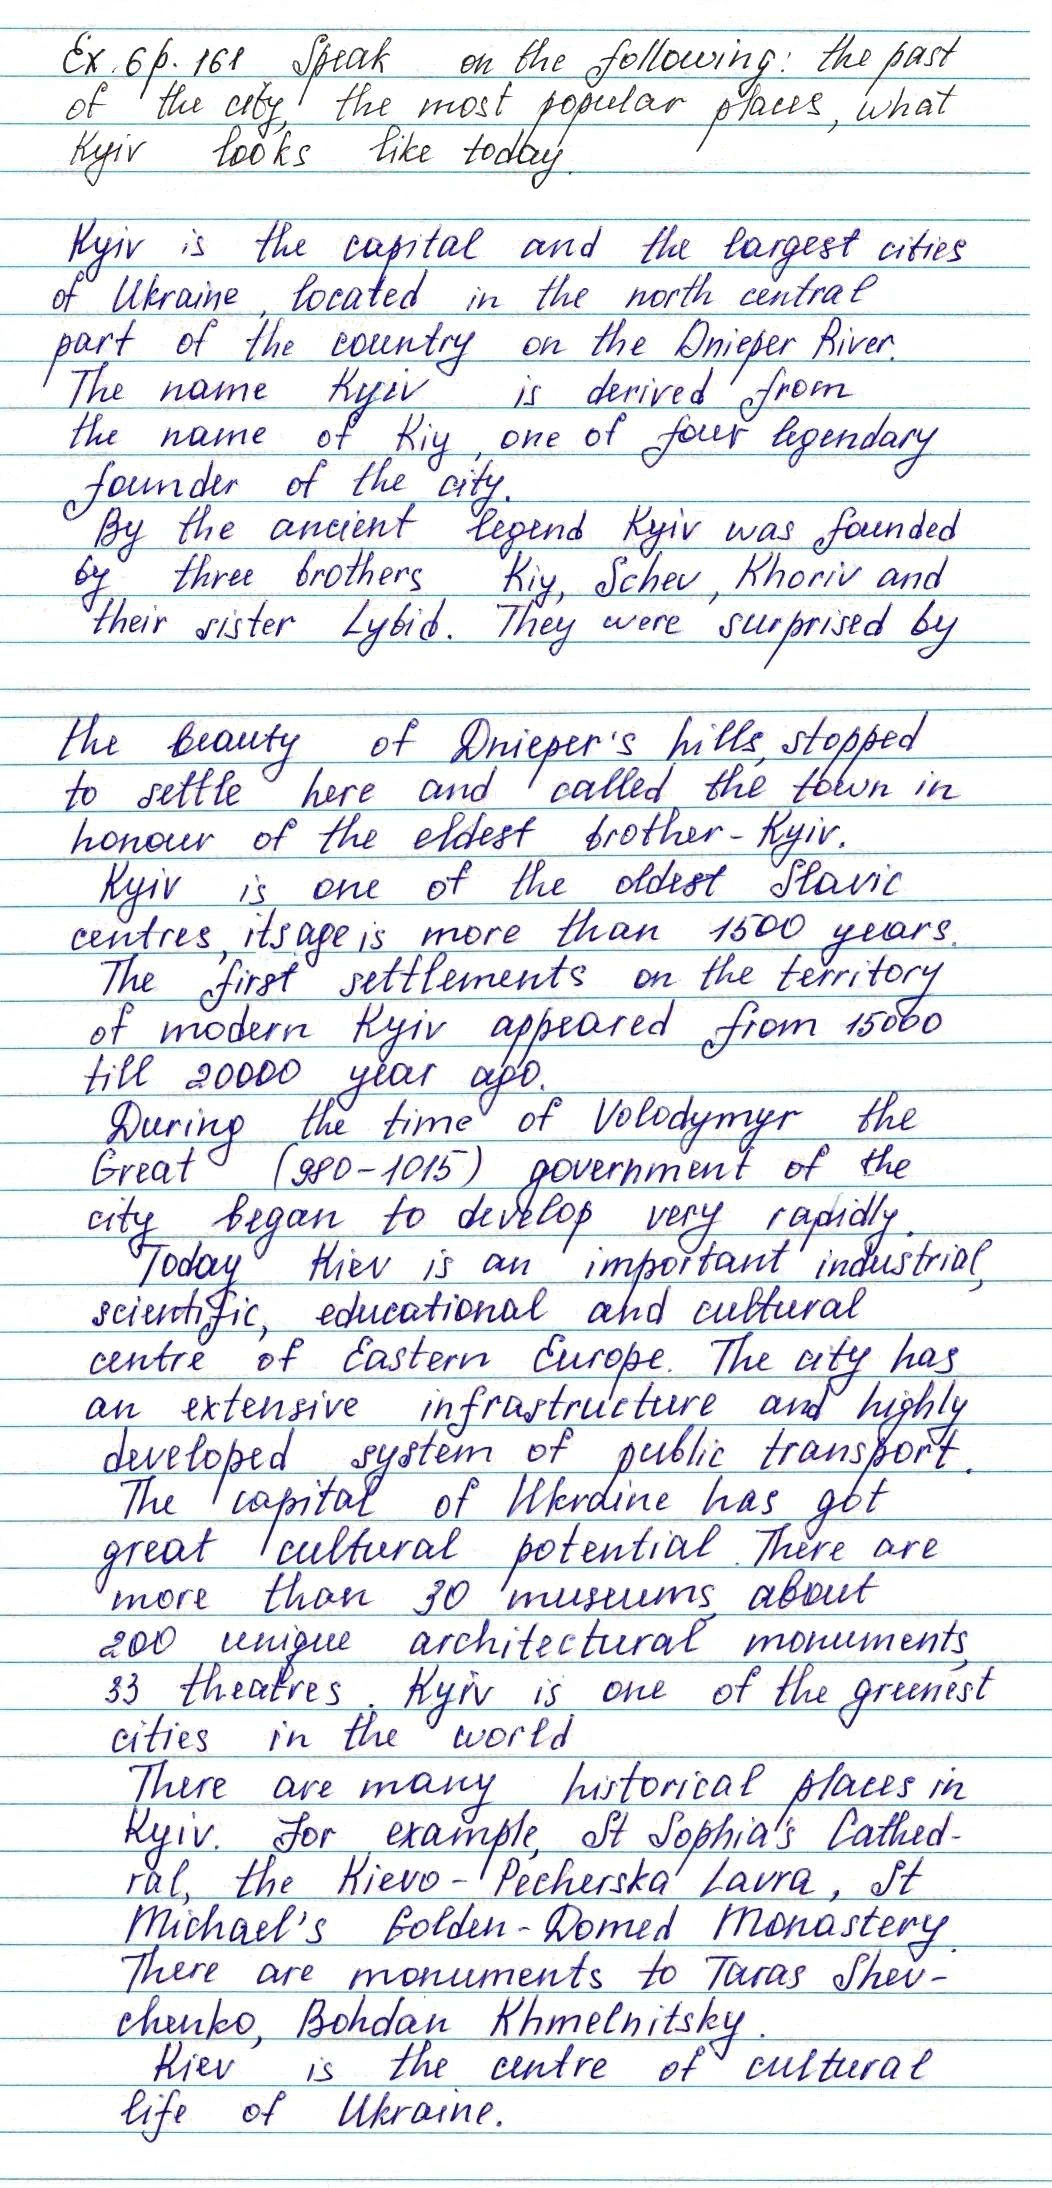 Ex. 6 p. 161 Speak on the following: the past
of the city, the most popular places, what
Kyiv looks like today.
Kyiv is the capital and the largest cities
of Ukraine, located in the north central
part of the country on the Dnieper River.
The name Kyiv is derived from
the name of Kiy, one of four legendary
founder of the city.
By the ancient legend Kyiv was founded
by three brothers Kiy, Schev, Khoriv and
their sister Lybid. They were surprised by
the beauty of Dnieper's hills, stopped
to settle here and called the town in
honour of the eldest brother - Kyiv.
Kyiv is one of the oldest Slavic
centres, its age is more than 1500 years.
The first settlements on the territory
of modern Kyiv appeared from 15000
till 20000 year ago.
During the time of Volodymyr the
Great (980-1015) government of the
city began to develop very rapidly.
Today Kiev is an important industrial,
scientific, educational and cultural
centre of Eastern Europe. The city has
an extensive infrastructure and highly
developed system of public transport.
The capital of Ukraine has got
great cultural potential. There are
more than 30 museums, about
200 unique architectural monuments,
33 theatres. Kyiv is one of the greenest
cities in the world
There are many historical places in
Kyiv. For example, St Sophia's Cathed-
ral, the Kievo-Pecherska Lavra, St
Michael's Golden-Domed Monastery.
There are monuments to Taras Shev-
chenko, Bohdan Khmelnitsky.
Kiev is the centre of cultural
life of Ukraine.